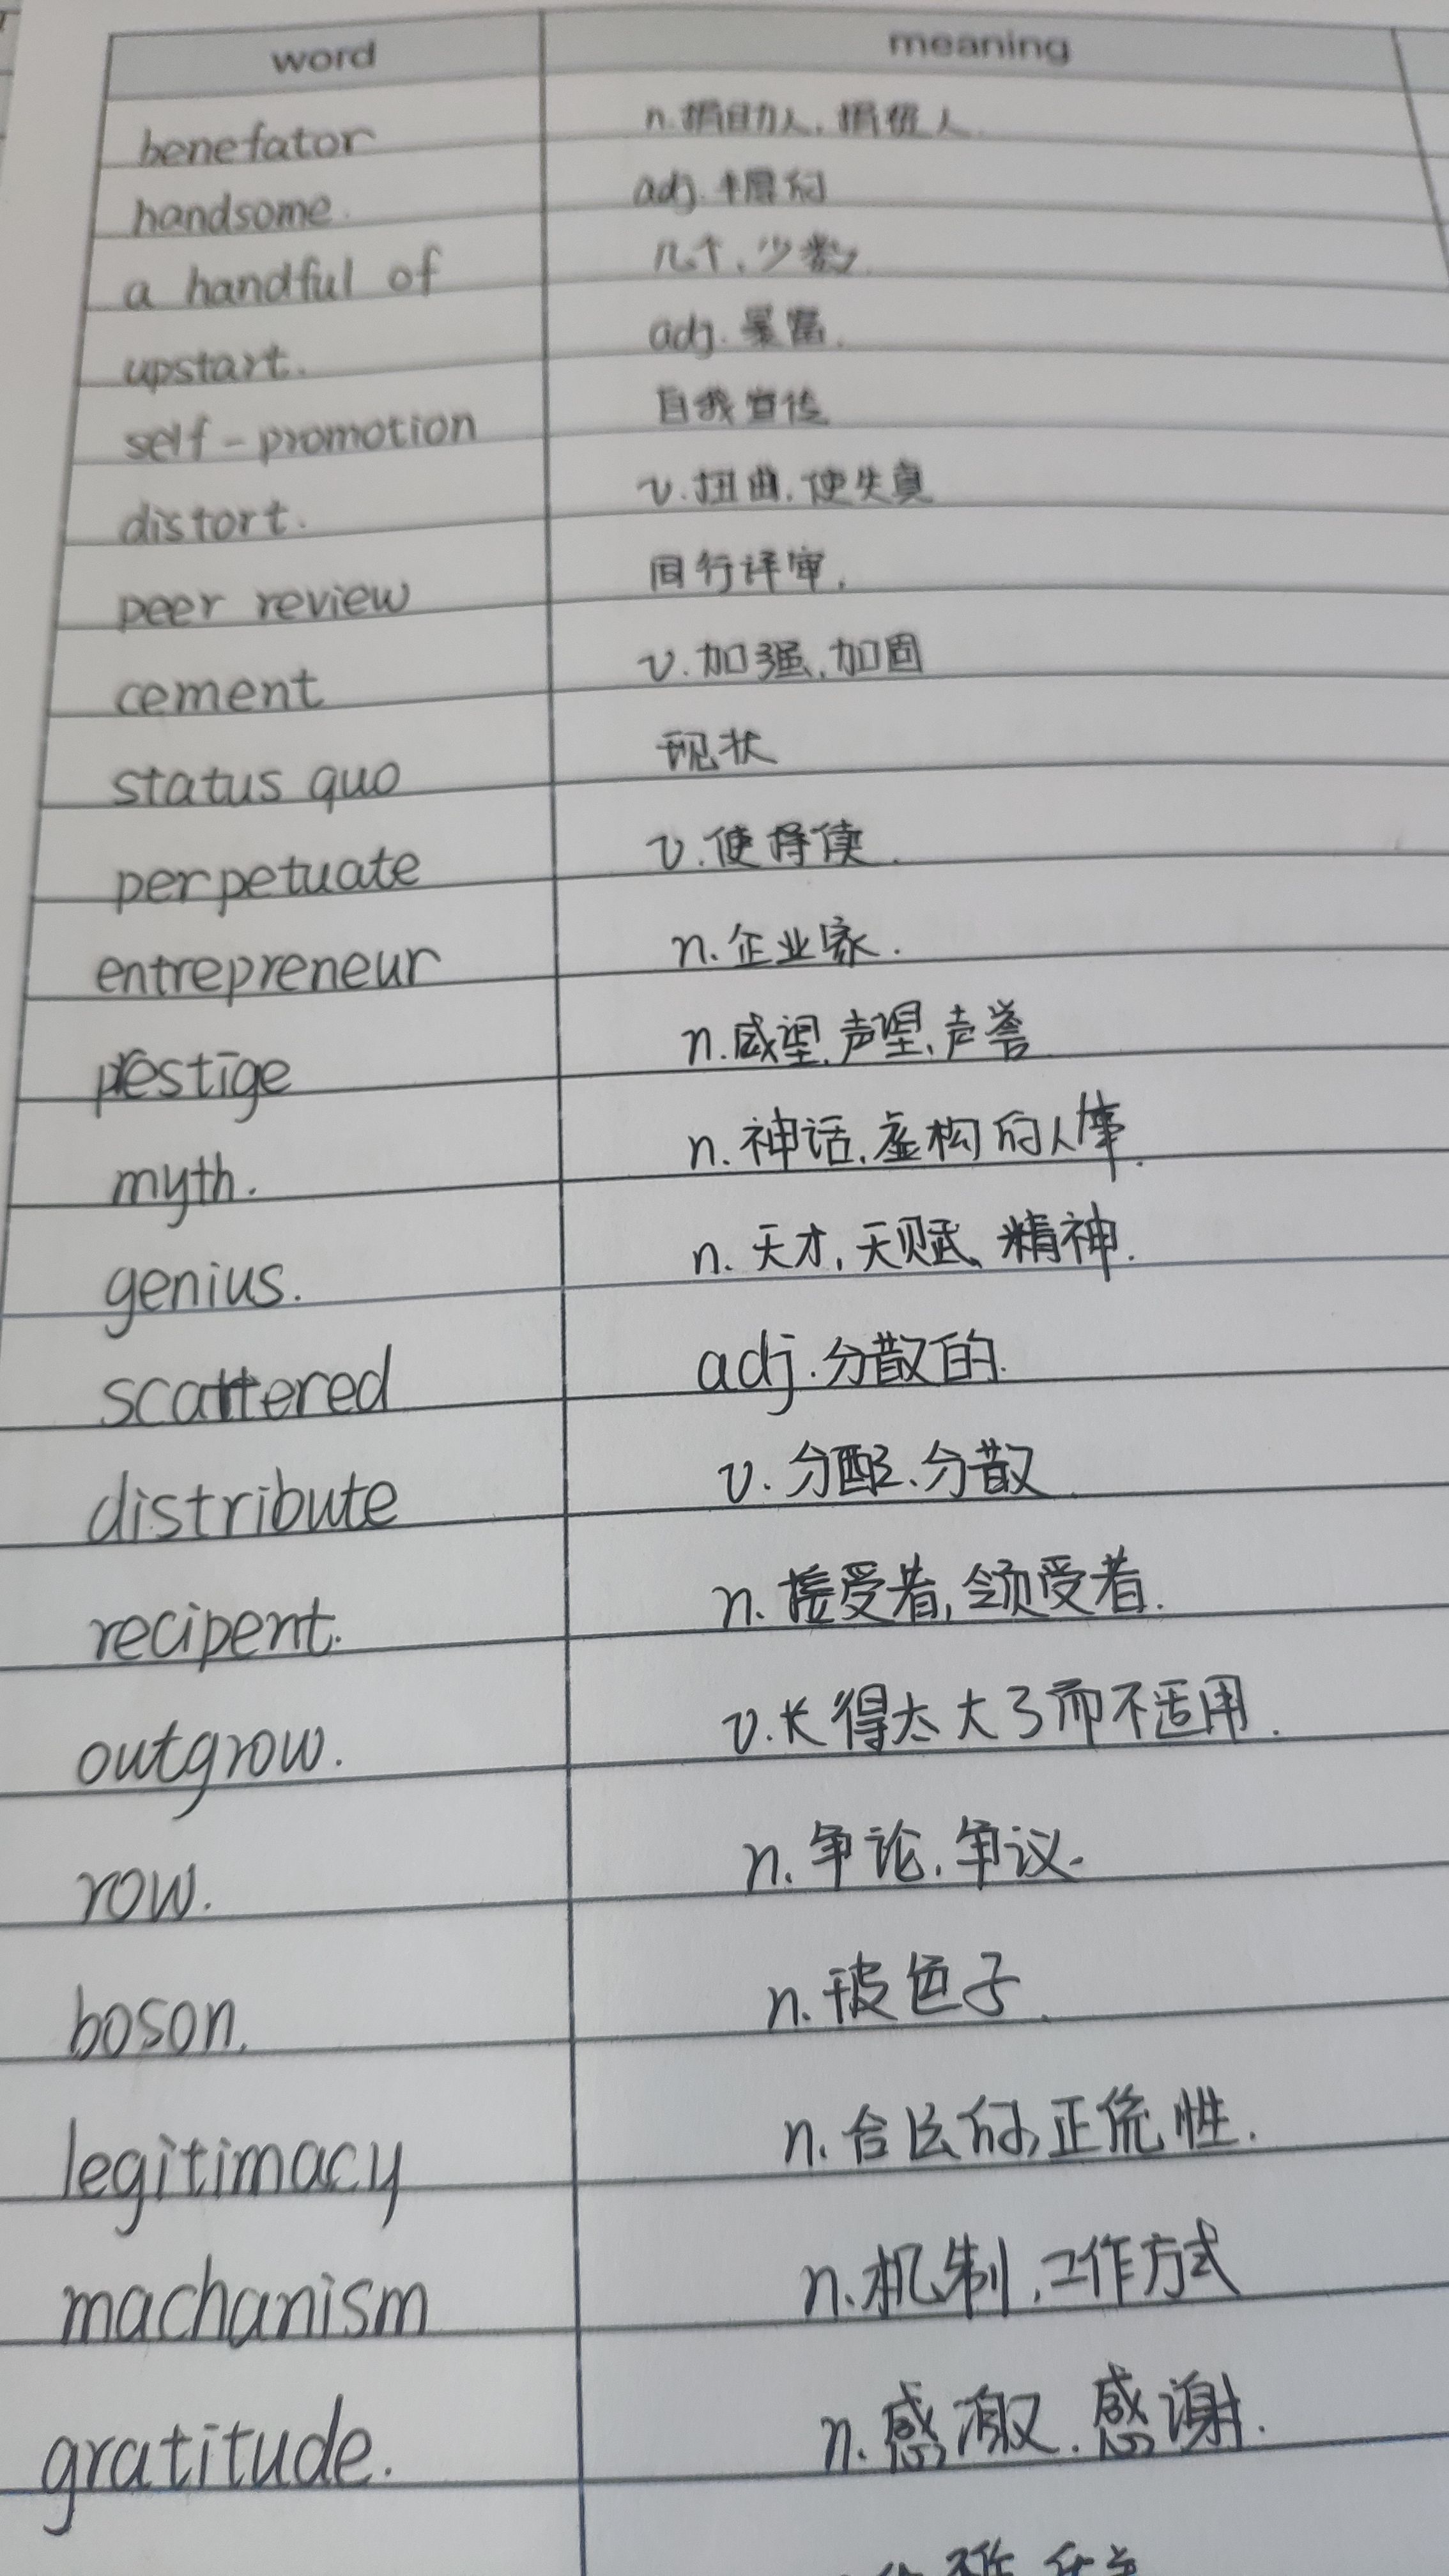 word meaning
benefator n.捐助人,捐赠人
handsome. adj.相当的
a handful of 几个,少数
upstart. adj.暴富.
self-promotion 自我宣传
distort. v.扭曲,使失真
peer review 同行评审.
cement v.加强,加固
status quo 现状
perpetuate v.使持续.
entrepreneur n.企业家.
prestige n.威望,声望,声誉
myth. n.神话,虚构的人事.
genius. n.天才,天赋,精神.
scattered adj.分散的.
distribute v.分配、分散
recipent. n.接受者,领受者.
outgrow. v.长得太大了而不适用.
row. n.争论,争议.
boson. n.玻色子.
legitimacy n.合法的,正统性.
machanism n.机制,工作方式
gratitude. n.感激.感谢.